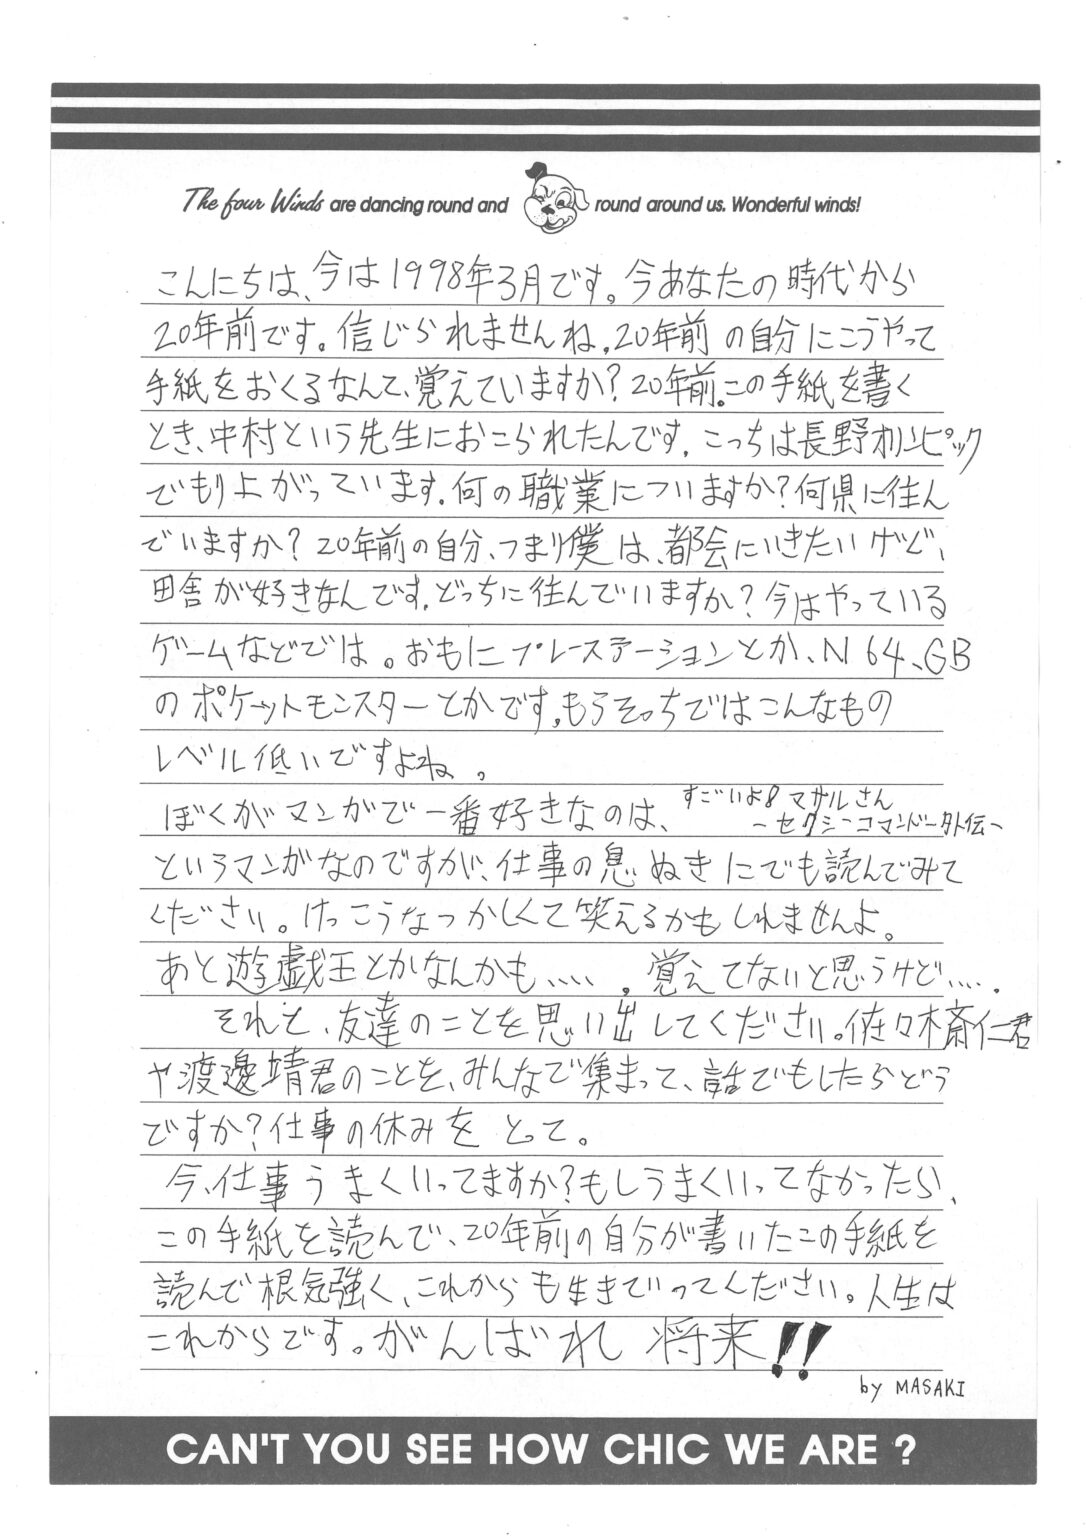 The four Winds are dancing round and round around us. Wonderful winds!
こんにちは、今は1998年3月です。今あなたの時代から
20年前です。信じられませんね。20年前の自分にこうやって
手紙をおくるなんて、覚えていますか?20年前。この手紙を書く
とき、中村という先生におこられたんです。こっちは長野オリンピック
でもり上がっています。何の職業についますか?何県に住ん
でいますか?20年前の自分、つまり僕は、都会にいきたいけど、
田舎が好きなんです。どっちに住んでいますか?今はやっている
ゲームなどでは。おもにプレーステーションとか、N64、GB
のポケットモンスターとかです。もうそっちではこんなもの
レベル低いですよね。
ぼくがマンガで一番好きなのは、すごいよ!!マサルさん
~セクシーコマンドー外伝~
というマンガなのですが、仕事の息ぬきにでも読んでみて
ください。けっこうなつかしくて笑えるかもしれませんよ。
あと遊戯王とかなんかも、、、、。覚えてないと思うけど、、、、.
それと、友達のことを思い出してください。佐々木斎仁君
や渡邊靖君のことを、みんなで集まって、話でもしたらどう
ですか?仕事の休みをとって。
今、仕事うまくいってますか?もしうまくいってなかったら、
この手紙を読んで、20年前の自分が書いたこの手紙を
読んで根気強く、これからも生きでいってください。人生は
これからです。がんばれ 将来!!
by MASAKI
CAN'T YOU SEE HOW CHIC WE ARE ?